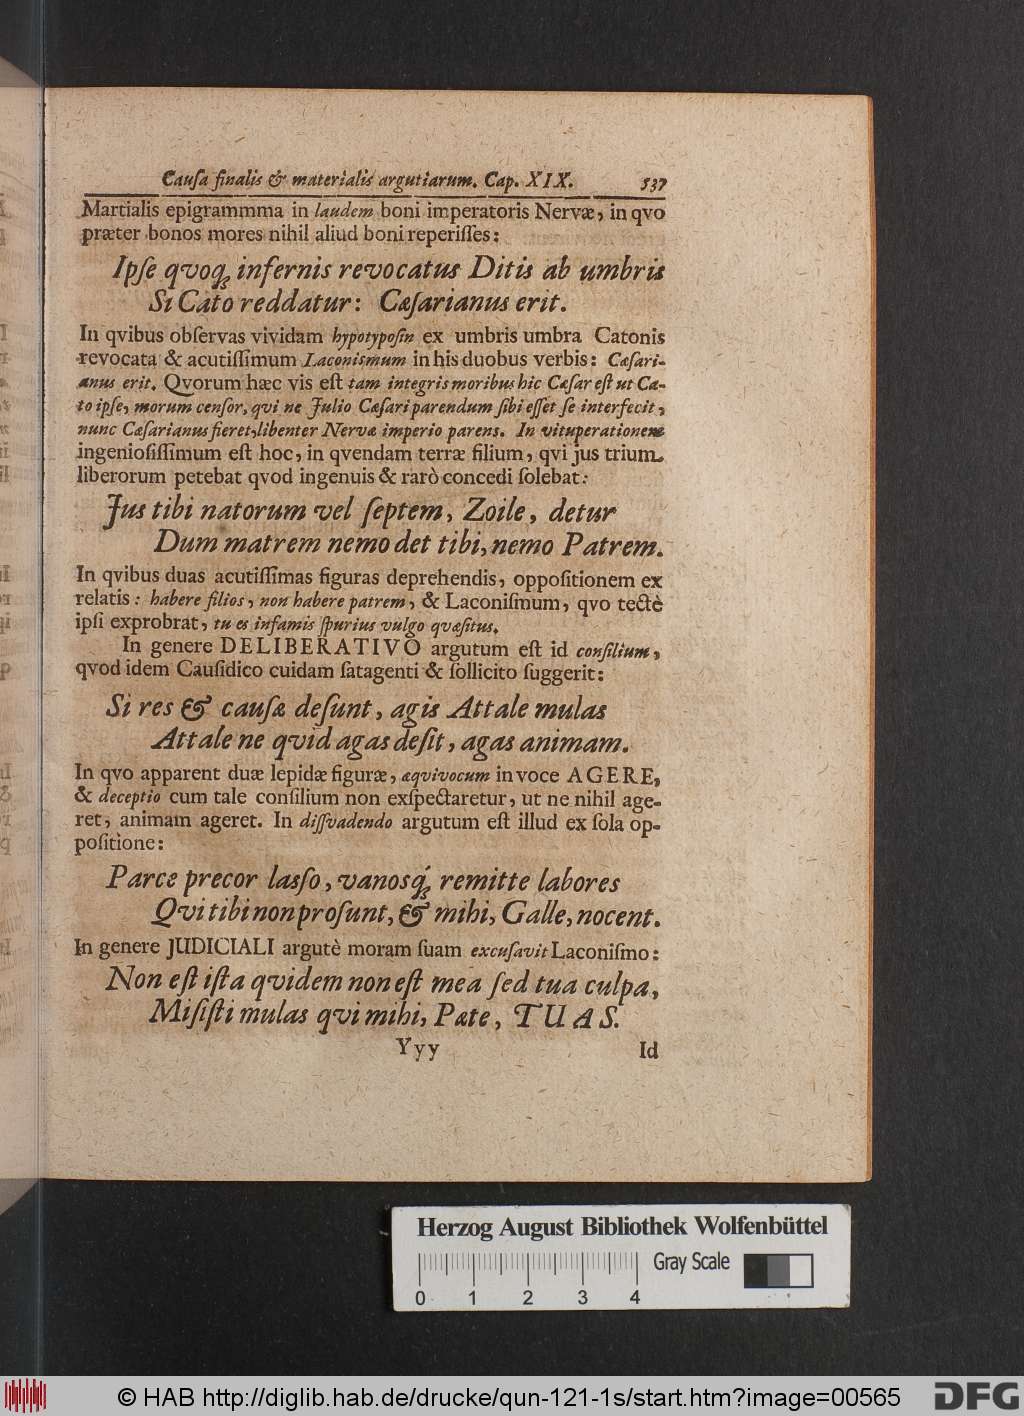 Cauſa finalis & materialis argutiarum. Cap. XIX. 537
Martialis epigrammma in laudem boni imperatoris Nervæ, in qvo
præter bonos mores nihil aliud boni reperiſſes:
Ipſe qvoq; infernis revocatus Ditis ab umbris
Si Cato reddatur: Cæſarianus erit.
In qvibus obſervas vividam hypotypoſin ex umbris umbra Catonis
revocata & acutiſſimum Laconismum in his duobus verbis: Cæſari-
anus erit. Qvorum hæc vis eſt tam integris moribus hic Cæſar eſt ut Ca-
to ipſe, morum cenſor, qvi ne Julio Cæſari parendum ſibi eſſet ſe interfecit,
nunc Cæſarianus fieret, libenter Nervæ imperio parens. In vituperationem
ingenioſiſſimum eſt hoc, in qvendam terræ filium, qvi jus trium
liberorum petebat qvod ingenuis & rarò concedi ſolebat:
Jus tibi natorum vel ſeptem, Zoile, detur
Dum matrem nemo det tibi, nemo Patrem.
In qvibus duas acutiſſimas figuras deprehendis, oppoſitionem ex
relatis: habere filios, non habere patrem, & Laconiſmum, qvo tectè
ipſi exprobrat, tu es infamis ſpurius vulgo qvæſitus.
In genere DELIBERATIVO argutum eſt id conſilium,
qvod idem Cauſidico cuidam ſatagenti & ſollicito ſuggerit:
Si res & cauſæ deſunt, agis Attale mulas
Attale ne qvid agas deſit, agas animam.
In qvo apparent duæ lepidæ figuræ, æqvivocum in voce AGERE,
& deceptio cum tale conſilium non exſpectaretur, ut ne nihil age-
ret, animam ageret. In diſſvadendo argutum eſt illud ex ſola op-
poſitione:
Parce precor laſſo, vanosq́; remitte labores
Qvi tibi non proſunt, & mihi, Galle, nocent.
In genere JUDICIALI argutè moram ſuam excuſavit Laconiſmo:
Non eſt iſta qvidem non eſt mea ſed tua culpa,
Miſiſti mulas qvi mihi, Pæte, TUAS.
Yyy Id
Herzog August Bibliothek Wolfenbüttel
Gray Scale
0 1 2 3 4
© HAB http://diglib.hab.de/drucke/qun-121-1s/start.htm?image=00565 DFG